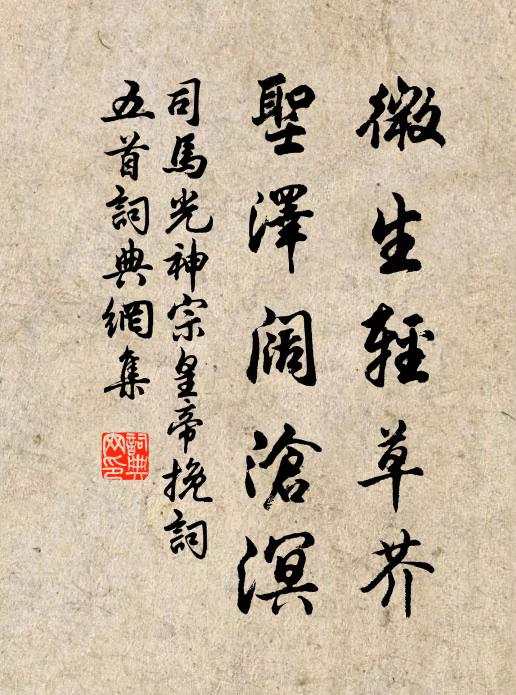 微生輕草芥
聖澤阔滄溟
司馬光神宗皇帝挽詞
五首詞典網集
詞典
网印